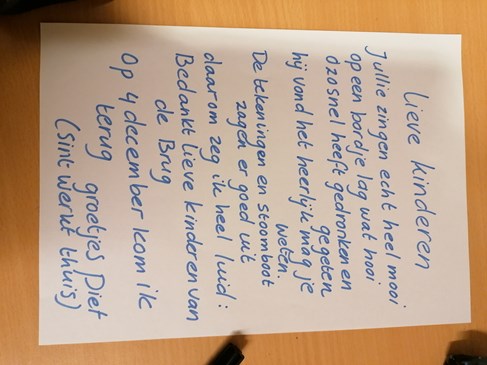 Lieve kinderen
Jullie zingen echt heel mooi
op een bordje lag wat hooi
Ozosnel heeft gedronken en
gegeten
hij vond het heerlijk mag je
weten.
De tekeningen en stoomboot
zagen er goed uit
daarom zeg ik heel luid:
Bedankt Lieve kinderen van
de Brug
Op 4 december kom ik
terug groetjes Piet
(Sint werkt thuis)